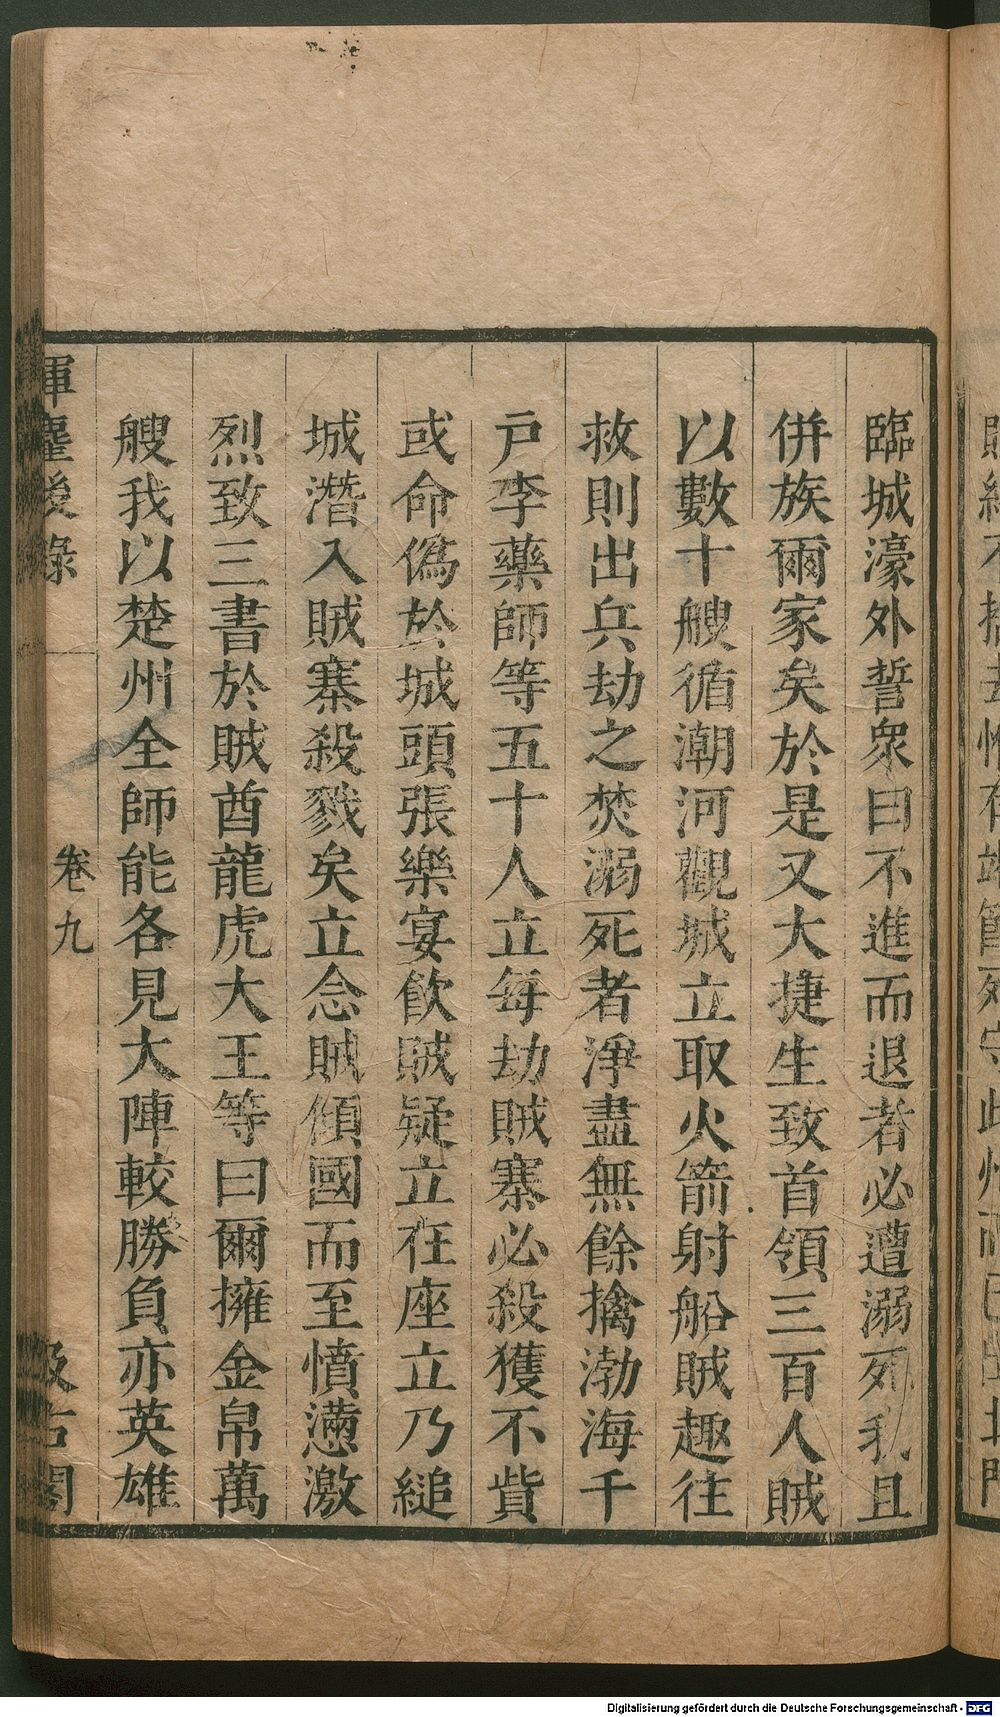 臨城濠外誓衆曰不進而退者必遭溺死我且
併族爾家矣於是又大捷生致首領三百人賊
以數十艘循潮河觀城立取火箭射船賊趣往
救則出兵劫之焚溺死者淨盡無餘擒渤海千
戸李藥師等五十人立每劫賊寨必殺獲不貲
或命僞於城頭張樂宴飲賊疑立在座立乃縋
城潛入賊寨殺戮矣立念賊傾國而至憤懣激
烈致三書於賊酋龍虎大王等曰爾擁金帛萬
艘我以楚州全師能各見大陣較勝負亦英雄
揮麈後錄
卷九
汲古閣
Digitalisierung gefördert durch die Deutsche Forschungsgemeinschaft - DFG